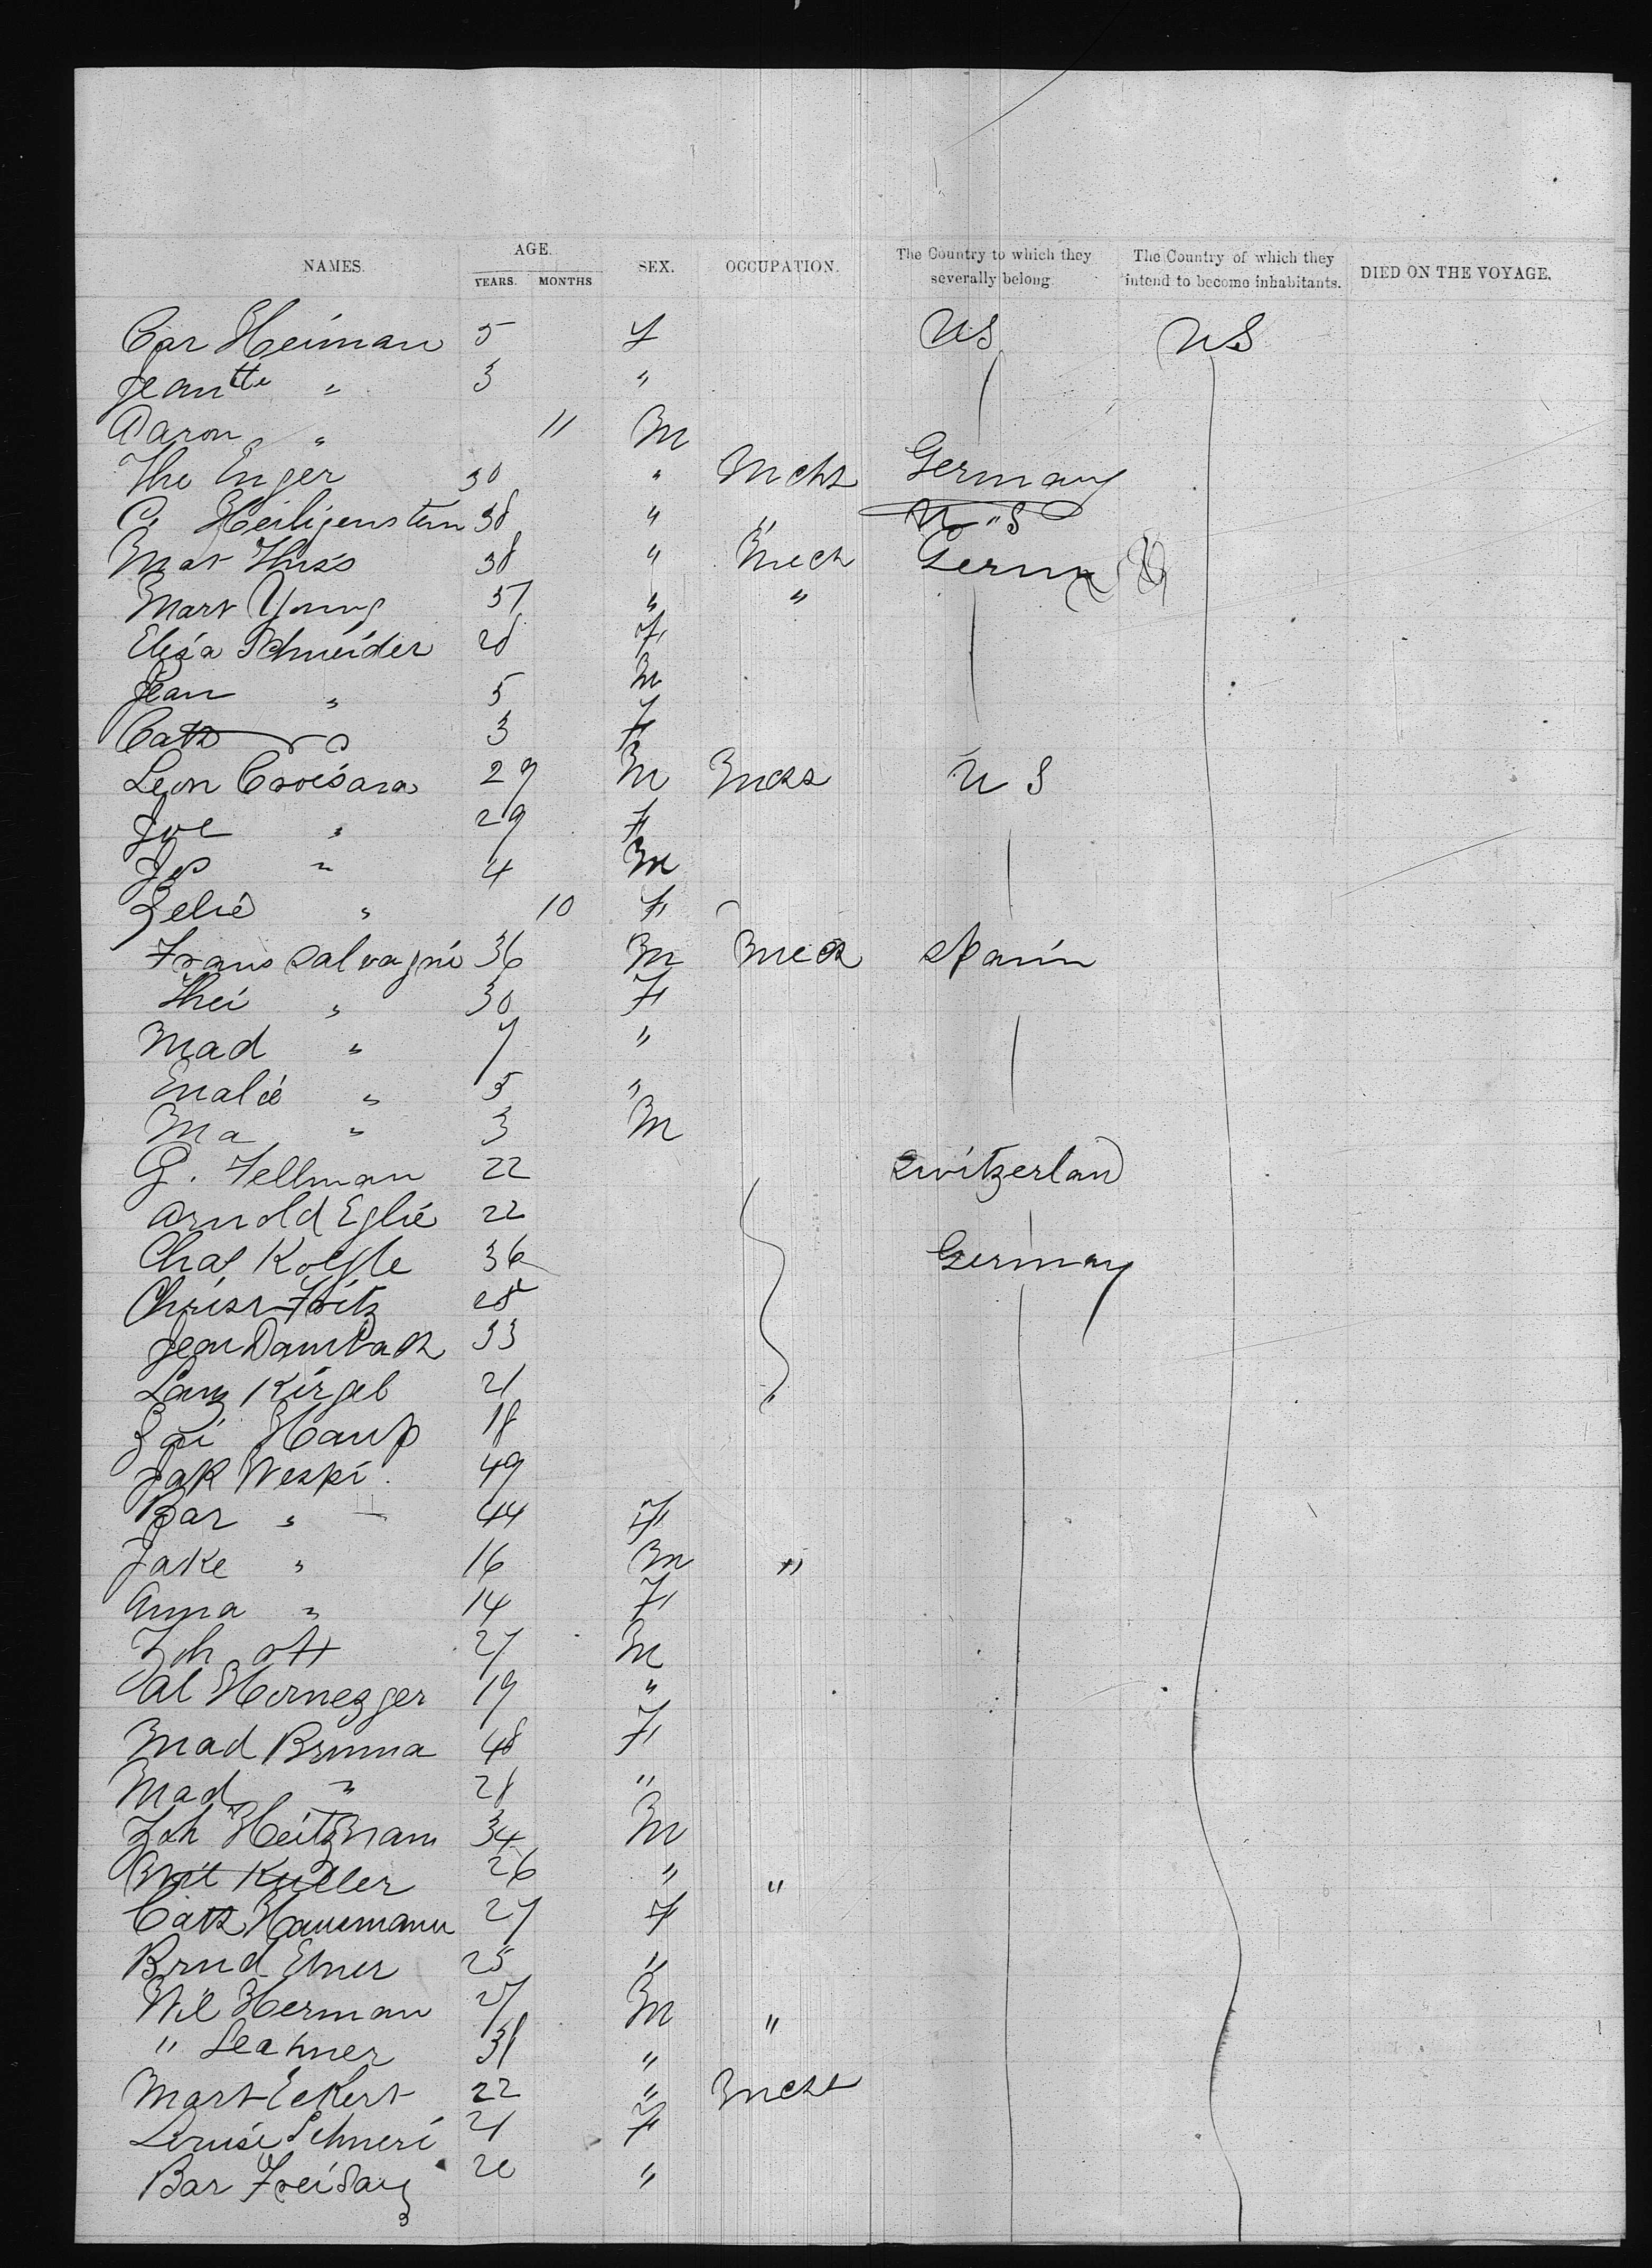 NAMES. AGE. YEARS. MONTHS SEX. OCCUPATION. The Country to which they severally belong The Country of which they intend to become inhabitants. DIED ON THE VOYAGE.
Car Heiman 5 f US US
Jeantte " 3 "
Aaron " 11 M
The Enger 30 " Mcht Germany
C. Heiligenstein 38 " " U"S
Mat Huss 38 " Mech Germ
Mart Young 57 " "
Elisa Schneider 28 F
Jean " 5 M
Cath 3 F
Leon Croisara 29 M U S
Joe " 29 F
Jos " 4 M
Zelie " 10 F
Frans Salvagni 36 M Mech Spain
Thei " 30 F
Mad " 7 "
Enalie " 5 "
Ma " 3 M
G. Fellman 22 Switzerland
Arnold Eglie 22
Chas Kolfle 36 Germany
Christ Fritz 28
Jean Dambach 33
Lanz Kirgel 21 "
Haup 18
Jak Weski 49
Bar " 44 F
Jake " 16 M "
Anna " 14 F
Joh ott 27 M
Al Hornezger 19 "
Mad Brunna 48 F
Mad " 28 "
Joh Heitzmam 34 M
Kudler 26 " "
Cath Hausmann 27 F
Brnd Ebner 25 "
Wil Herman 27 M "
" Leahner 31 "
Mart Eckert 22 " Mcht
Louise Schneri 21 F
Bar Freiday 20 "